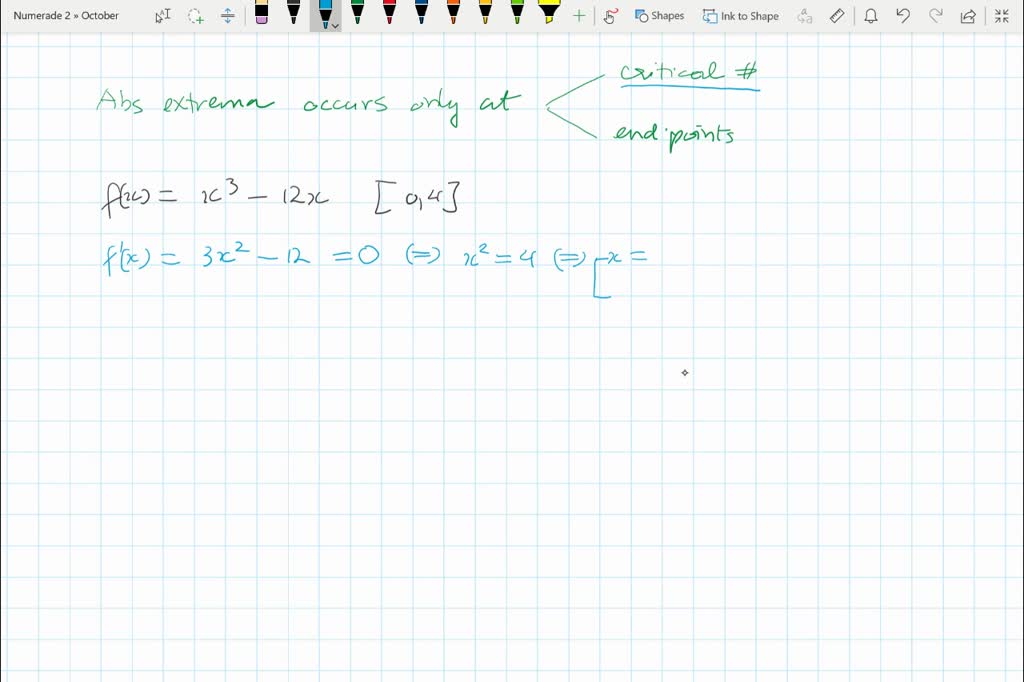 Numerade 2 » October
Shapes
Ink to Shape
Abs extrema occurs only at
critical #
endpoints
f(x) = x³ – 12x [0,4]
f'(x) = 3x² – 12 = 0 (=) x² = 4 (=) [x =